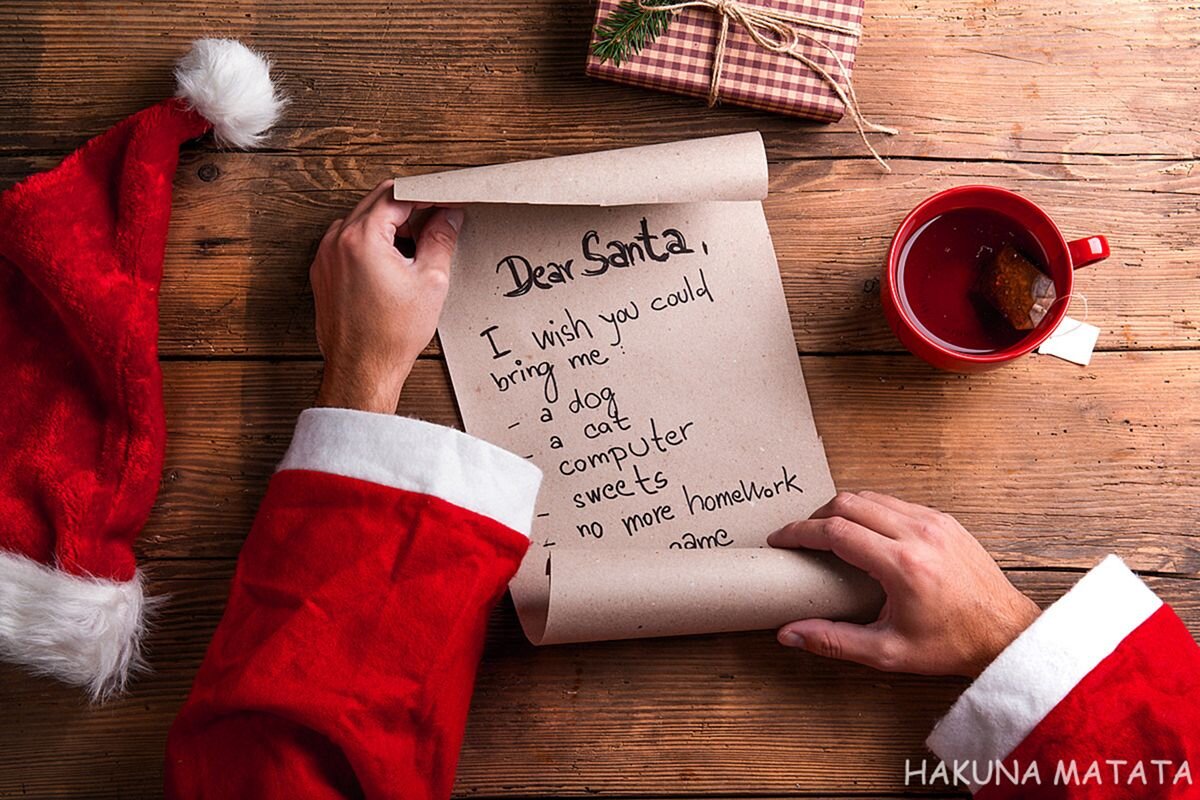 Dear Santa,
I wish you could
bring me:
- a dog
- a cat
computer
- sweets
- no more homework
HAKUNA MATATA